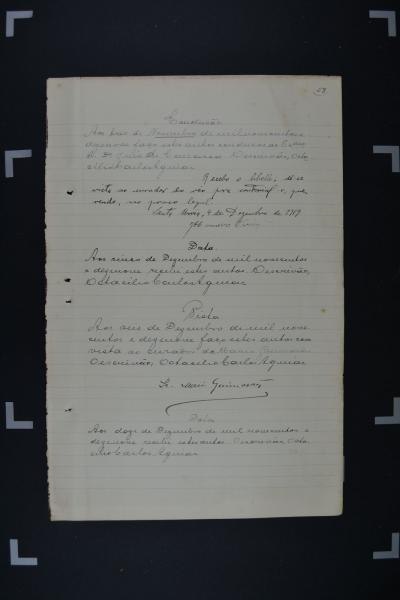 Conclusão
Aos tres de Novembro de mil novecentos e
dezenove faço estes autos conclusos ao Exmo
Sr. Dr. Juiz de Escrivão, Octa
cilio Carlos Aguiar
Recebo o libello; dê-se
vista ao curador do réo para contestal-o, que
rendo, no prazo legal.
4 de Dezembro de 1919
Data
Aos cinco de Dezembro de mil novecentos
e dezenove recebi estes autos. O escrivão,
Octacilio Carlos Aguiar
Vista
Aos seis de Dezembro de mil nove
centos e dezenove faço estes autos com
vista ao Curador do Mario Guimarães
O escrivão, Octacilio Carlos Aguiar
Mario Guimarães
Data
Aos doze de Dezembro de mil novecentos e
dezenove recebi estes autos. O escrivão Octa
cilio Carlos Aguiar